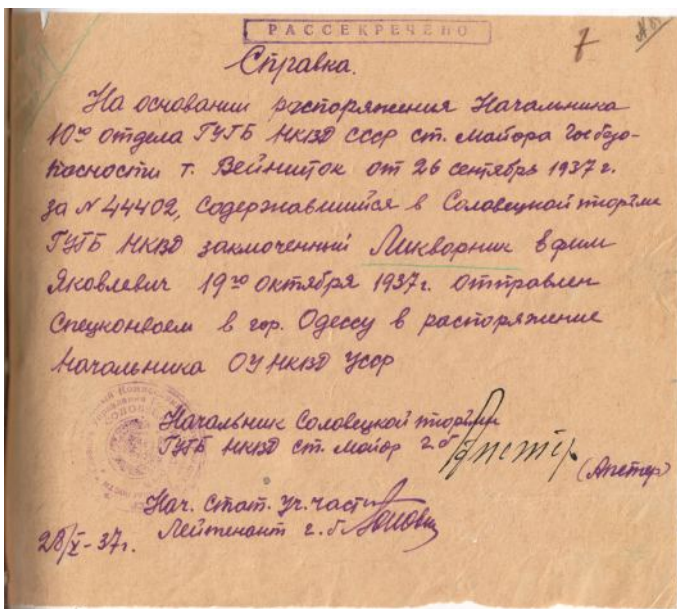 РАССЕКРЕЧЕНО
7
Справка.
На основании распоряжения Начальника
10го отдела ГУГБ НКВД СССР ст. майора Госбезо-
пасности т. Вейншток от 26 сентябрь 1937 г.
за № 44402, содержавшийся в Соловецкой тюрьме
ГУГБ НКВД заключенный Ликворник Ефим
Яковлевич 19го октября 1937г. отправлен
Спецконвоем в гор. Одессу в распоряжение
Начальника ОУ НКВД УССР
Начальник Соловецкой тюрьмы
ГУГБ НКВД ст. майор г.б.
(Апетер)
Нач. стат. уч. части
Лейтенант г.б.
28/X-37г.